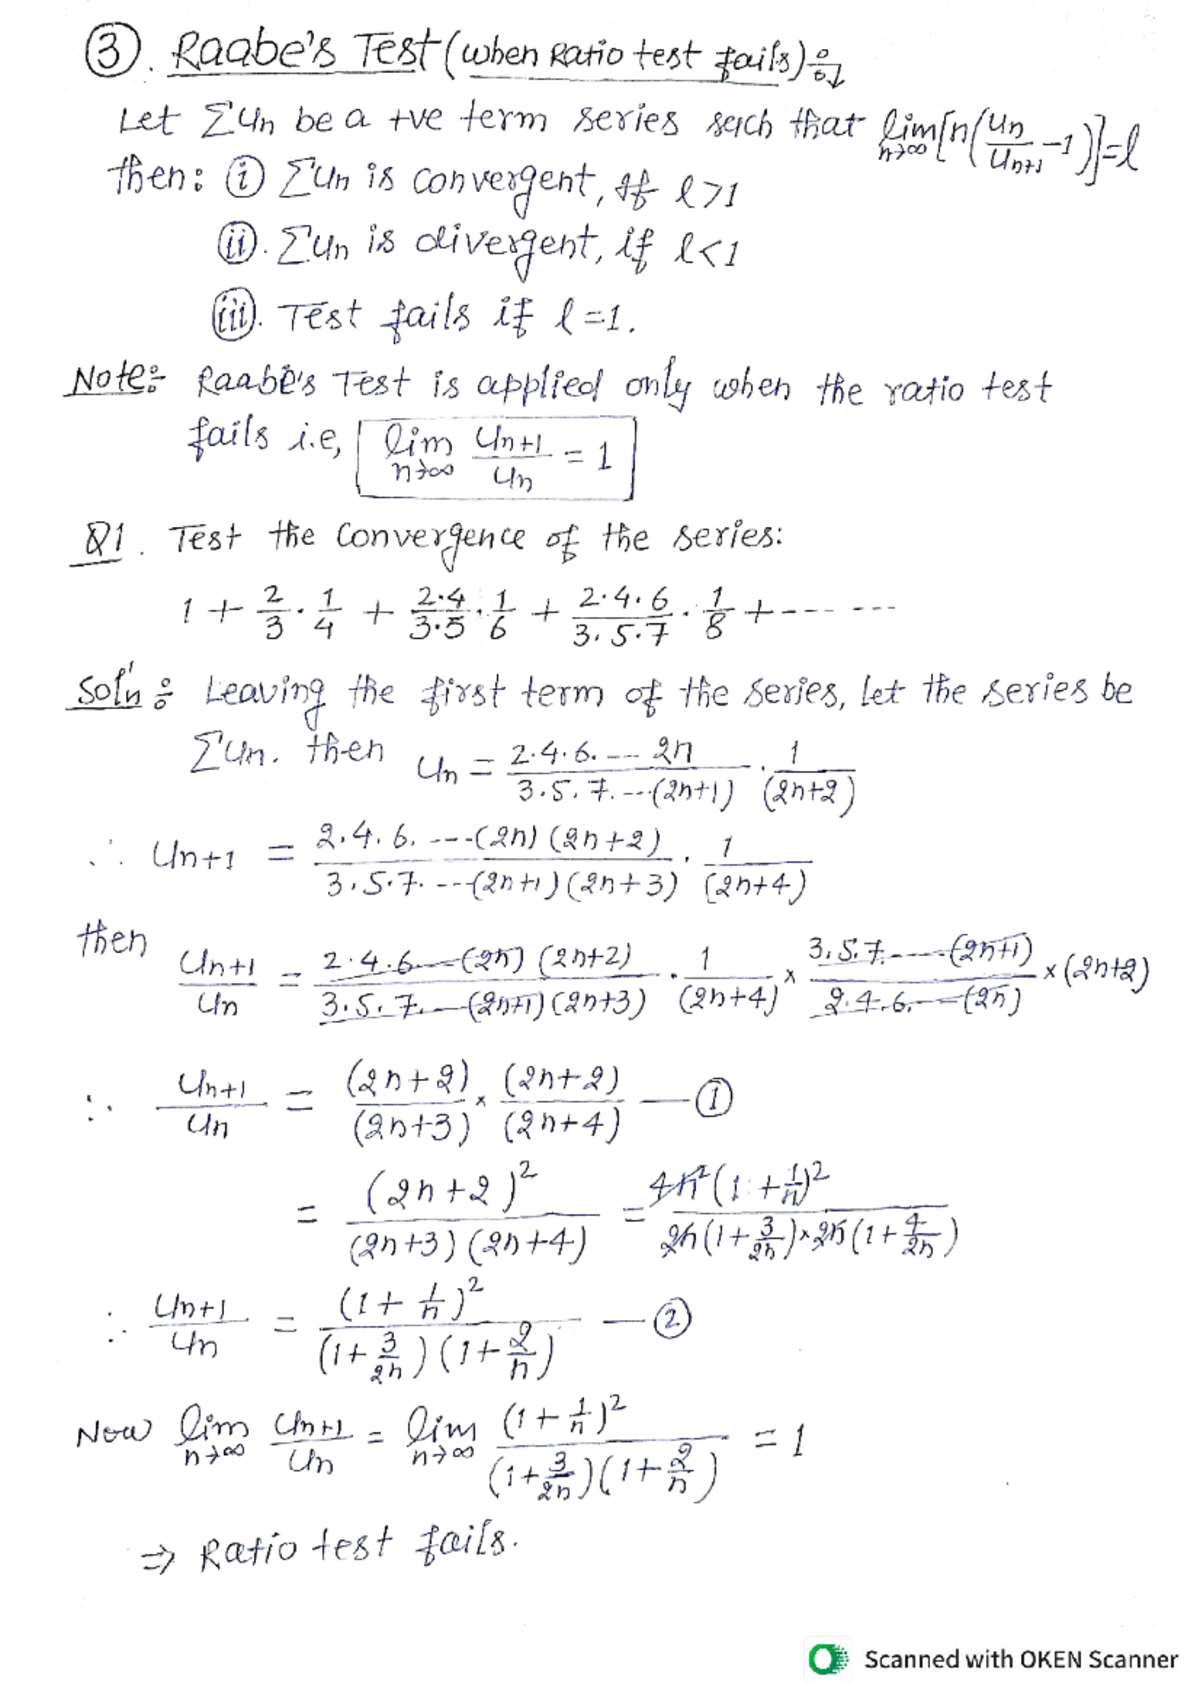 ③. Raabe's Test (when Ratio test fails):
Let ΣUn be a +ve term series such that lim n→∞ [n(Un/Un+1 -1)] = l
then: (i) ΣUn is convergent, if l>1
(ii). ΣUn is divergent, if l<1
(iii). Test fails if l=1.
Note:- Raabe's Test is applied only when the ratio test
fails i.e, lim n→∞ Un+1/Un = 1
Q1. Test the Convergence of the series:
1 + 2/3 · 1/4 + 2·4/3·5 · 1/6 + 2·4·6/3·5·7 · 1/8 + --- ---
Sol'n: Leaving the first term of the series, let the series be
ΣUn. then Un = 2·4·6. --- 2n / 3·5·7. ---(2n+1) · 1/(2n+2)
∴ Un+1 = 2·4·6. ---(2n)(2n+2) / 3·5·7. ---(2n+1)(2n+3) · 1/(2n+4)
then Un+1/Un = 2·4·6---(2n)(2n+2) / 3·5·7.---(2n+1)(2n+3) · 1/(2n+4) × 3·5·7.---(2n+1) / 2·4·6.---(2n) × (2n+2)
∴ Un+1/Un = (2n+2)/(2n+3) × (2n+2)/(2n+4) — ①
= (2n+2)²/(2n+3)(2n+4) = 4n²(1+1/n)² / 2n(1+3/2n)×2n(1+4/2n)
∴ Un+1/Un = (1+1/n)² / (1+3/2n)(1+2/n) — ②
Now lim n→∞ Un+1/Un = lim n→∞ (1+1/n)² / (1+3/2n)(1+2/n) = 1
⇒ Ratio test fails.
Scanned with OKEN Scanner